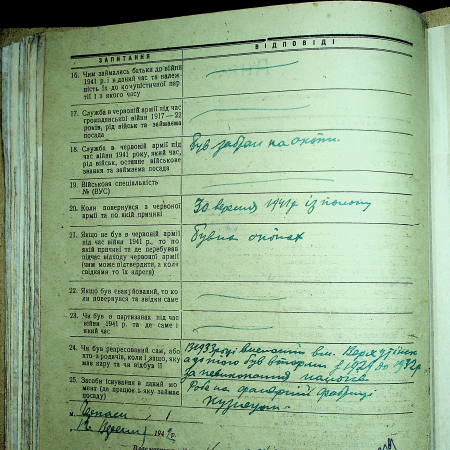 ЗАПИТАННЯ
ВІДПОВІДІ
16. Чим займались батьки до війни
1941 р. і в даний час та належ-
ність їх до комуністичної пар-
тії і з якого часу
17. Служба в червоній армії під час
громадянської війни 1917—22
років, рід військ та займаема
посада
18. Служба в червоній армії під
час війни 1941 року, який час,
рід військ, останнє військове
звання та займаема посада
був забран на окопи
19. Військова спеціальність
№ (ВУС)
20. Коли повернувся з червоної
армії та по якій причині
30 вересня 1941 р із полону
21. Якщо не був в червоній армії
під час війни 1941 р., то по
якій причині та де перебував
під час відходу червоної армії
(чим може підтвердити, а коли
свідками то їх адреса)
був на окопах
22. Якщо був евакуйований, то ко-
ли повернувся та звідки саме
23. Чи був в партизанах під час
війни 1941 р. та де саме і
який час
24. Чи був репресований сам, або
хто з родичів, коли і якщо, яку
мав кару та чи відбув її
в 1933 році висланий
а до того був
за невиконання налогів
25. Засоби існування в даний мо-
мент (де працює і яку займає
посаду)
фабриці
м.
194